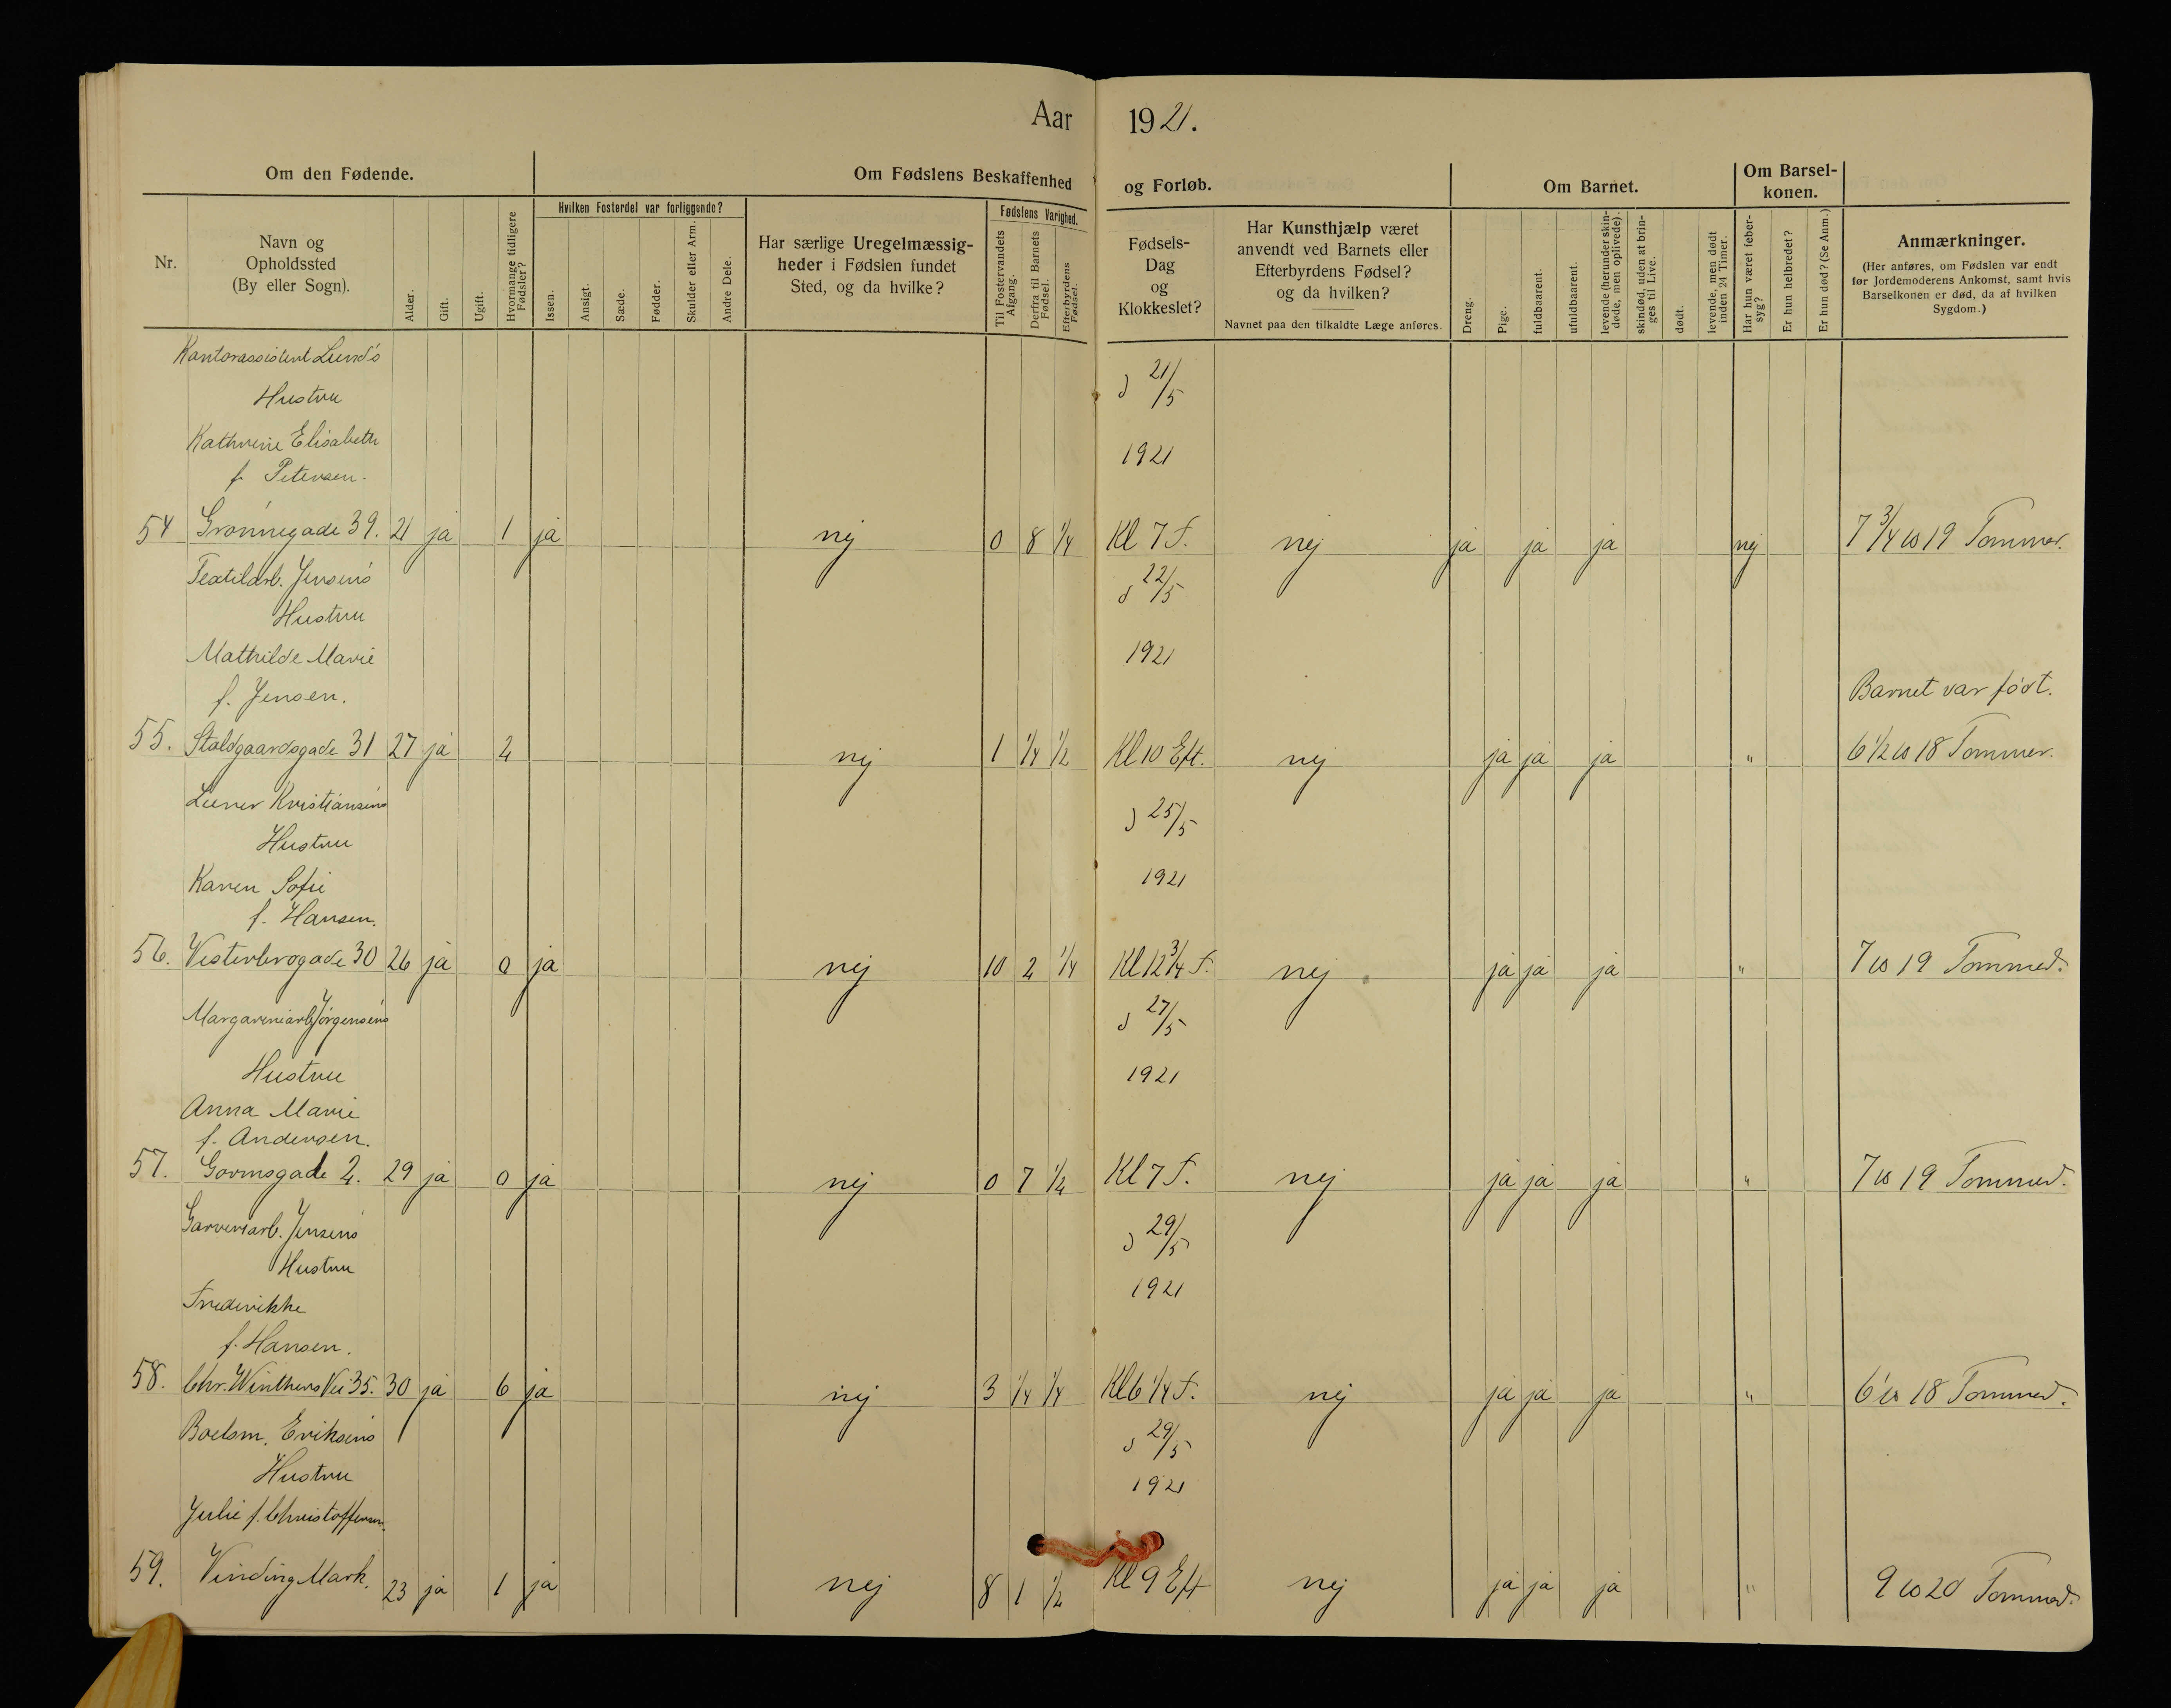 Aar 1921.
Om den Fødende.
Om Fødslens Beskaffenhed og Forløb.
Om Barnet.
Om Barselkonen.
Nr.
Navn og
Opholdssted
(By eller Sogn).
Alder.
Gift.
Ugift.
Hvormange tidligere
Fødsler?
Hvilken Fosterdel var forliggende?
Issen.
Ansigt.
Sæde.
Fødder.
Skulder eller Arm.
Andre Dele.
Har særlige Uregelmæssig-
heder i Fødslen fundet
Sted, og da hvilke?
Fødslens Varighed.
Til Fostervandets
Afgang.
Derfra til Barnets
Fødsel.
Efterbyrdens
Fødsel.
Fødsels-
Dag
og
Klokkeslet?
Har Kunsthjælp været
anvendt ved Barnets eller
Efterbyrdens Fødsel?
og da hvilken?
Navnet paa den tilkaldte Læge anføres.
Dreng.
Pige.
fuldbaarent.
ufuldbaarent.
levende (herunder skin-
døde, men oplivede).
skindød, uden at brin-
ges til Live.
dødt.
levende, men dødt
inden 24 Timer.
Har hun været feber-
syg?
Er hun helbredet?
Er hun død? (Se Anm.)
Anmærkninger.
(Her anføres, om Fødslen var endt
før Jordemoderens Ankomst, samt hvis
Barselkonen er død, da af hvilken
Sygdom.)
Kontorassistent Lund's
Hustru
d 21/5
Kathrine Elisabeth
1921
f. Petersen.
54 Grønnegade 39. 21 ja 1 ja nej 0 8 1/4 Kl 7 F. nej ja ja ja nej 7 3/4 ℔ 19 Tommer.
Textilarb. Jensens
d 22/5
Hustru
Mathilde Marie
1921
f. Jensen.
Barnet var født.
55. Staldgaardsgade 31 27 ja 2 nej 1 1/4 1/2 Kl 10 Eft. nej ja ja ja " 6 1/2 ℔ 18 Tommer.
Kristiansens
d 25/5
Hustru
Karen Sofie
1921
f. Hansen.
56. Vesterbrogade 30 26 ja 0 ja nej 10 2 1/4 Kl 12 3/4 F. nej ja ja ja " 7 ℔ 19 Tommer.
Margarinearb Jörgensens
d 27/5
Hustru
1921
Anna Marie
f. Andersen.
57. Gormsgade 2. 29 ja 0 ja nej 0 7 1/2 Kl 7 F. nej ja ja ja " 7 ℔ 19 Tommer.
Garveriarb. Jensens
d 29/5
Hustru
Frederikke
1921
f. Hansen.
58. Chr. Winthers Vei 35. 30 ja 6 ja nej 3 1/4 1/4 Kl 6 1/4 F. nej ja ja ja " 6 ℔ 18 Tommer.
Boelsm. Eriksens
d 29/5
Hustru
1921
Julie f. Christoffersen.
59. Vinding Mark. 23 ja 1 ja nej 8 1 1/2 Kl 9 Eft nej ja ja ja " 9 ℔ 20 Tommer.